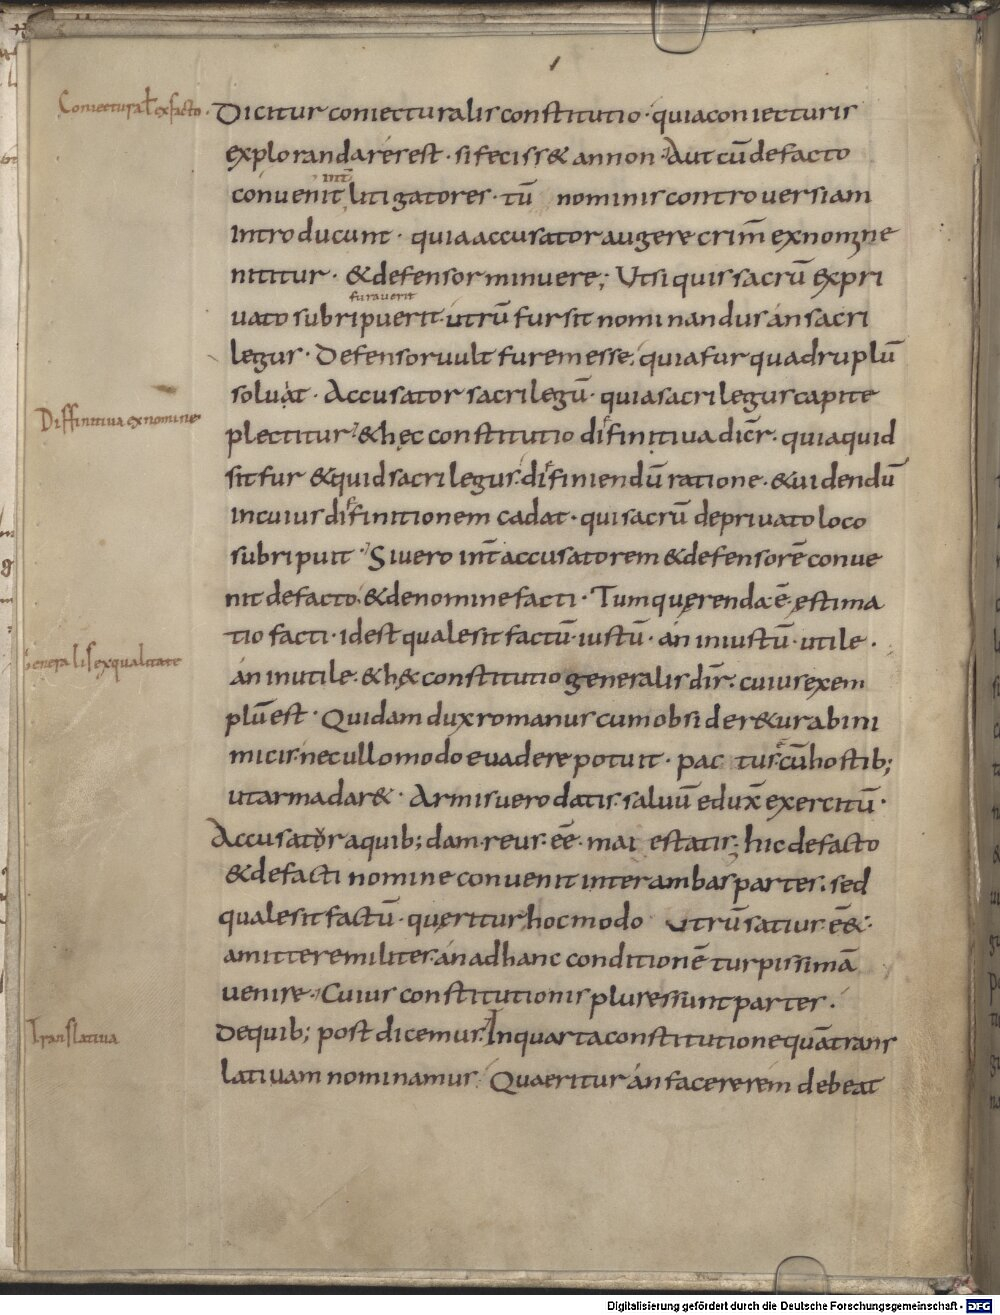 Coniecturał ex facto.
Dicitur coniecturalis constitutio · quia coniecturis
exploranda res est · si feciss& an non · Aut cū de facto
int̄
convenit litigatores · tū nominis controversiam
introducunt · quia accusator augere crim̄ ex nomine
nititur · &defensor minuere; Ut si quis sacrū ex pri
furaverit
vato subripuerit · utrū fur sit nominandus án sacri
legus · Defensor vult furem esse · quia fur quadruplū
solvat · Accusator sacrilegū · quia sacrilegus capite
Diffinitiva ex nomine
plectitur · &hęc constitutio difinitiva dicr̄ · quia quid
sit fur &quid sacrilegus · difiniendū ratione · &videndū
in cuius difinitionem cadat · qui sacrū de privato loco
subripuit · Si vero int̄ accusatorem &defensorē conve
nit de facto · &de nomine facti · Tum quęrenda ē ęstima
tio facti · id est quale sit factū · iustū · án iniustū · utile ·
Generalis ex qualitate
án inutile · &h& constitutio generalis dir̄ · cuius exem
plū est · Quidam dux romanus cum obsider&ur ab ini
micis · nec ullo modo evadere potuit · pac tus cū hostib;
ut arma dar& · Armis vero datis · salvū eduxˉ exercitū ·
Accusator a quib;dam · reus · eē · maiestatis · hic de facto
&de facti nomine convenit inter ambas partes · sed
quale sit factū · quęritur hoc modo Utrū satius · eē& ·
amittere milites · án ad hanc conditionē turpissimā
venire · Cuius constitutionis plures sunt partes ·
Translativa
De quib; post dicemus · In quarta constitutione quā trans
lativam nominamus · Quaeritur án facere rem debeat
Digitalisierung gefördert durch die Deutsche Forschungsgemeinschaft · DFG